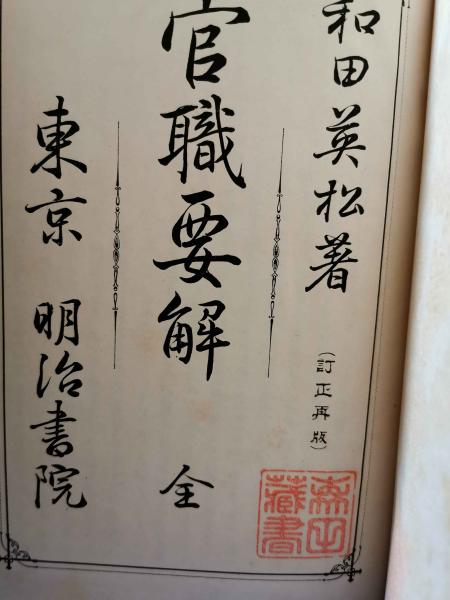 和田英松著
(訂正再版)
官職要解 全
東京 明治書院
森田蔵書